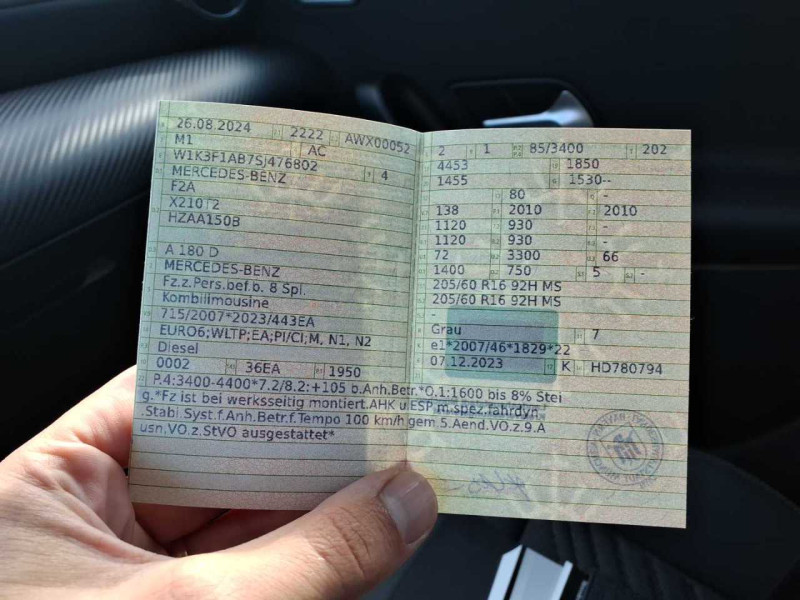 26.08.2024 2222 AWX00052
M1 AC
W1K3F1AB7SJ476802
MERCEDES-BENZ 4
F2A
X210T2
HZAA150B
A 180 D
MERCEDES-BENZ
Fz.z.Pers.bef.b. 8 Spl.
Kombilimousine
715/2007*2023/443EA
EURO6;WLTP;EA;PI/CI;M, N1, N2
Diesel
0002 36EA 1950
2 1 85/3400 202
4453 1850
1455 1530--
80 -
138 2010 2010
1120 930 -
1120 930 -
72 3300 66
1400 750 5 -
205/60 R16 92H MS
205/60 R16 92H MS
-
Grau 7
e1*2007/46*1829*22
07.12.2023 K HD780794
P.4:3400-4400*7.2/8.2:+105 b.Anh.Betr.*O.1:1600 bis 8% Stei
g.*Fz ist bei werksseitig montiert.AHK u.ESP m.spez.fahrdyn
.Stabi Syst.f.Anh.Betr.f.Tempo 100 km/h gem.5.Aend.VO.z.9.A
usn.VO.z.StVO ausgestattet*